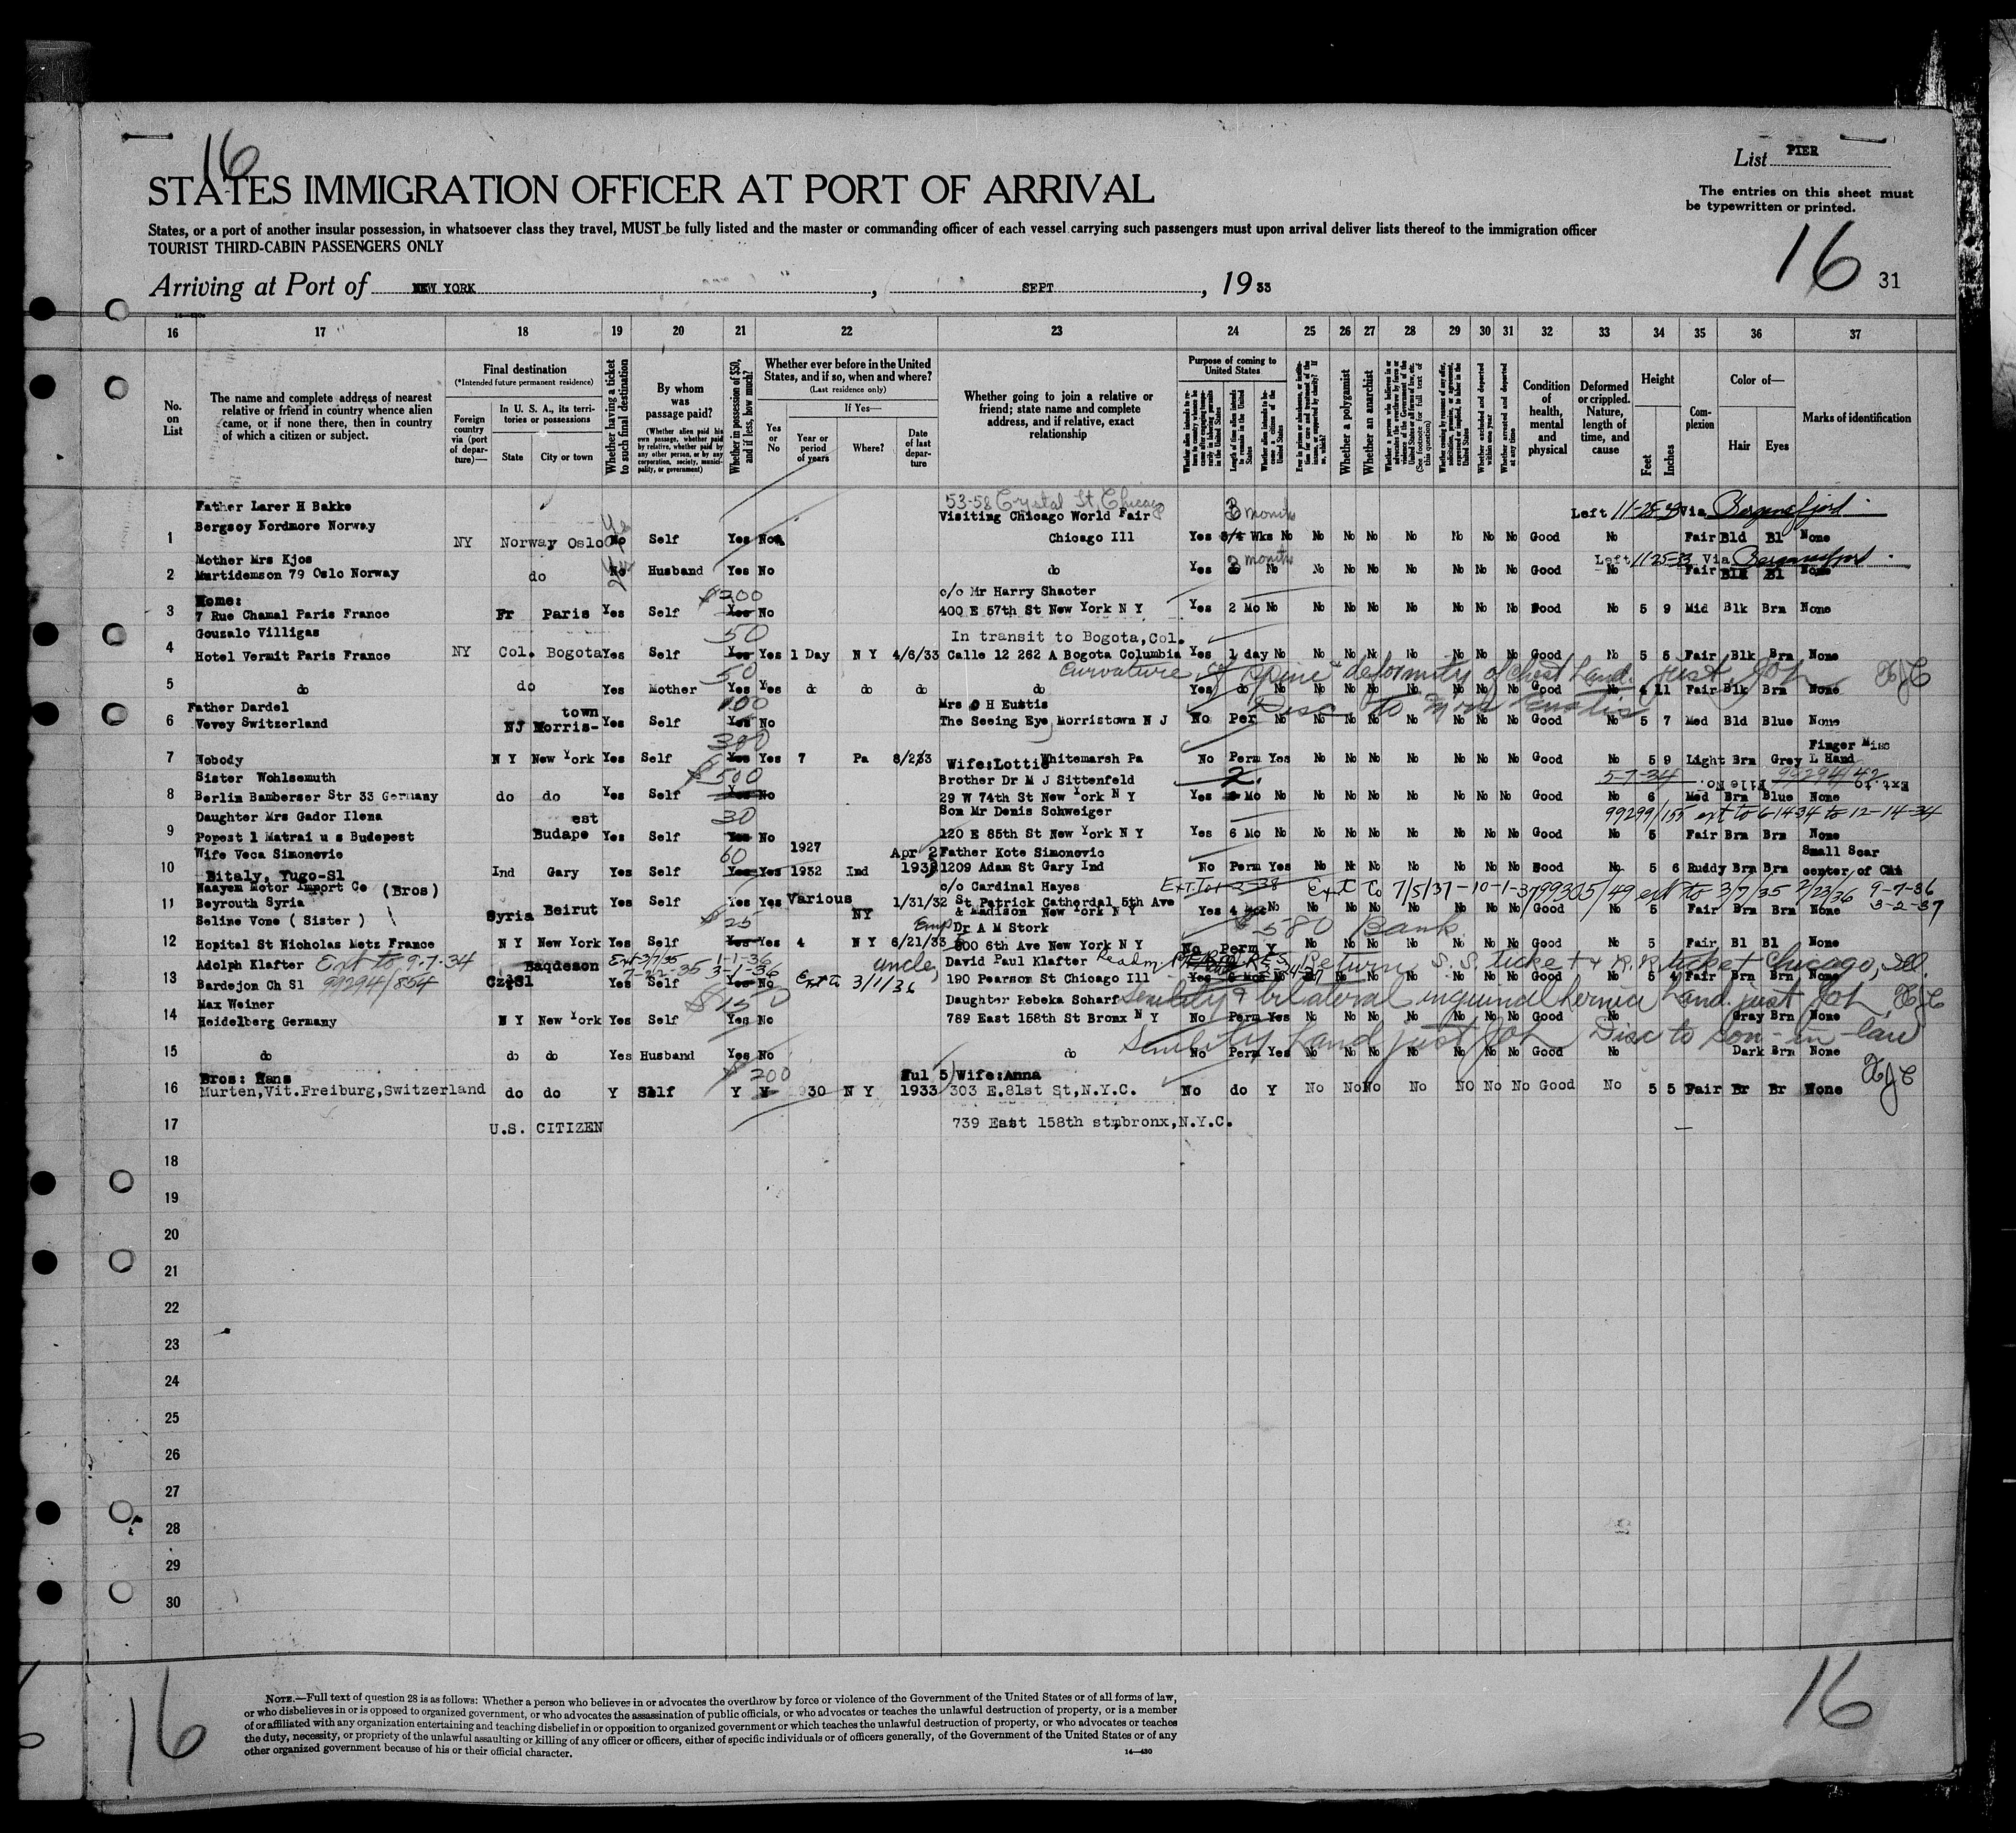 16
List PIER
STATES IMMIGRATION OFFICER AT PORT OF ARRIVAL
The entries on this sheet must
be typewritten or printed.
States, or a port of another insular possession, in whatsoever class they travel, MUST be fully listed and the master or commanding officer of each vessel carrying such passengers must upon arrival deliver lists thereof to the immigration officer
TOURIST THIRD-CABIN PASSENGERS ONLY
16 31
Arriving at Port of NEW YORK , SEPT , 19 33
16 17 18 19 20 21 22 23 24 25 26 27 28 29 30 31 32 33 34 35 36 37
No. on List
The name and complete address of nearest relative or friend in country whence alien came, or if none there, then in country of which a citizen or subject.
Final destination
(*Intended future permanent residence)
Foreign country via (port of departure)—
In U. S. A., its territories or possessions
State City or town
Whether having a ticket to such final destination
By whom was passage paid?
(Whether alien paid his own passage, whether paid by relative, whether paid by any other person, or by any corporation, society, municipality, or government)
Whether in possession of $50, and if less, how much?
Whether ever before in the United States, and if so, when and where?
(Last residence only)
Yes or No
If Yes—
Year or period of years
Where?
Date of last departure
Whether going to join a relative or friend; state name and complete address, and if relative, exact relationship
Purpose of coming to United States
Whether a polygamist
Whether an anarchist
Condition of health, mental and physical
Deformed or crippled. Nature, length of time, and cause
Height
Feet Inches
Complexion
Color of—
Hair Eyes
Marks of identification
Father Larer H Bakke 53-58 Crystal St, Chicago 3 months Left 11-25-33 Via Bergensfjord
Bergsoy Nordmore Norway Visiting Chicago World Fair
1 NY Norway Oslo No Self Yes No Chicago Ill Yes 3/4 Wks No No No No No No No No Good No Fair Bld Bl None
Mother Mrs Kjos 2 months Left 11-25-33 Via Bergensfjord
2 Martidemson 79 Oslo Norway do No Husband Yes No do Yes do No No No No No No No No Good No Fair Bld Bl None
Home: $200 c/o Mr Harry Shacter
3 7 Rue Chamal Paris France Fr Paris Yes Self Yes No 400 E 57th St New York N Y Yes 2 Mo No No No No No No No No Good No 5 9 Mid Blk Brn None
Gouzalo Villigas 50 In transit to Bogota, Col.
4 Hotel Vermit Paris France NY Col. Bogota Yes Self Yes Yes 1 Day N Y 4/6/33 Calle 12 262 A Bogota Columbia Yes 1 day No No No No No No No No Good No 5 5 Fair Blk Brn None
50 Curvature of spine & deformity of chest Land. just.
5 do do Yes Mother Yes Yes do do do do Yes do No No No No No No No No Good No 4 11 Fair Blk Brn None
Father Dardel town 100 Mrs O H Eustis Disc. to Miss Eustis
6 Vevey Switzerland NJ Morris- Yes Self Yes No The Seeing Eye, Morristown N J No Per No No No No No No No No Good No 5 7 Med Bld Blue None
300 Finger Miss
7 Nobody N Y New York Yes Self Yes Yes 7 Pa 8/2/33 Wife:Lottie Whitemarsh Pa No Perm Yes No No No No No No No Good No 5 9 Light Brn Grey L Hand
Sister Wohlsemuth $500 Brother Dr M J Sittenfeld 2. 5-7-34 File No. 99294/42 Ext. to
8 Berlin Bamberser Str 33 Germany do do Yes Self Yes No 29 W 74th St New York N Y Yes Mo No No No No No No No No Good No 6 Med Brn Blue None
Daughter Mrs Gador Ilena est 30 Son Mr Denis Schweiger 99299/155 ext to 6-14-34 to 12-14-34
9 Popest 1 Matrai u s Budapest Budape Yes Self Yes No 120 E 85th St New York N Y Yes 6 Mo No No No No No No No No Good No 5 Fair Brn Brn None
Wife Veca Simonovic 60 1927 Apr 2 Father Kote Simonovic Small Scar
10 Bitaly, Yugo-Sl Ind Gary Yes Self Yes Yes 1932 Ind 1932 1209 Adam St Gary Ind No Perm Yes No No No No No No No Good No 5 6 Ruddy Brn Brn center of Chi
Naayem Motor Import Co (Bros) c/o Cardinal Hayes Ext to 7/5/37-10-1-37 99305/49 ext to 3/7/35 2/23/36 9-7-36
11 Beyrouth Syria Syria Beirut Yes Self Yes Yes Various NY 1/31/32 St Patrick Cathedral 5th Ave & Madison New York N Y Yes 4 Mos No No No No No No No No Good No 5 Fair Brn Brn None 3-2-37
Seline Vone ( Sister ) $25 Emp Dr A M Stork $580 Bank
12 Hopital St Nicholas Metz France N Y New York Yes Self Yes Yes 4 N Y 6/21/33 800 6th Ave New York N Y No Perm Y No No No No No No No Good No 5 Fair Bl Bl None
Adolph Klafter Ext to 9-7-34 Ext-3/7/35 1-1-36 uncle David Paul Klafter PERM RES. Return S.S. ticket & R.R. ticket Chicago, Ill.
13 Bardejon Ch Sl 99294/854 CzSl Bagdeson 7-22-35 3-1-36 Yes Self Yes No Ext to 3/1/36 190 Pearson St Chicago Ill Yes 6 Mos No No No No No No No Good No 5 4 Fair Brn Brn None
Max Weiner $450 Daughter Rebeka Scharf Senility & bilateral inguinal hernia Land. just
14 Heidelberg Germany N Y New York Yes Self Yes No 789 East 158th St Bronx N Y No Perm Yes No No No No No No No Good No Gray Brn None
Senility Land just Disc to son-in-law
15 do do do Yes Husband Yes No do No Perm Yes No No No No No No No Good No Dark Brn None
Bros: Hans $200 Jul 5 Wife:Anna
16 Murten,Vit.Freiburg,Switzerland do do Y Self Y Y 1930 N Y 1933 303 E.81st St,N.Y.C. No do Y No No No No No No No Good No 5 5 Fair Br Br None
17 U.S. CITIZEN 739 East 158th st,bronx,N.Y.C.
18
19
20
21
22
23
24
25
26
27
28
29
30
16 16
NOTE.—Full text of question 28 is as follows: Whether a person who believes in or advocates the overthrow by force or violence of the Government of the United States or of all forms of law,
or who disbelieves in or is opposed to organized government, or who advocates the assassination of public officials, or who advocates or teaches the unlawful destruction of property, or is a member
of or affiliated with any organization entertaining and teaching disbelief in or opposition to organized government or which teaches the unlawful destruction of property, or who advocates or teaches
the duty, necessity, or propriety of the unlawful assaulting or killing of any officer or officers, either of specific individuals or of officers generally, of the Government of the United States or of any
other organized government because of his or their official character.
14—430